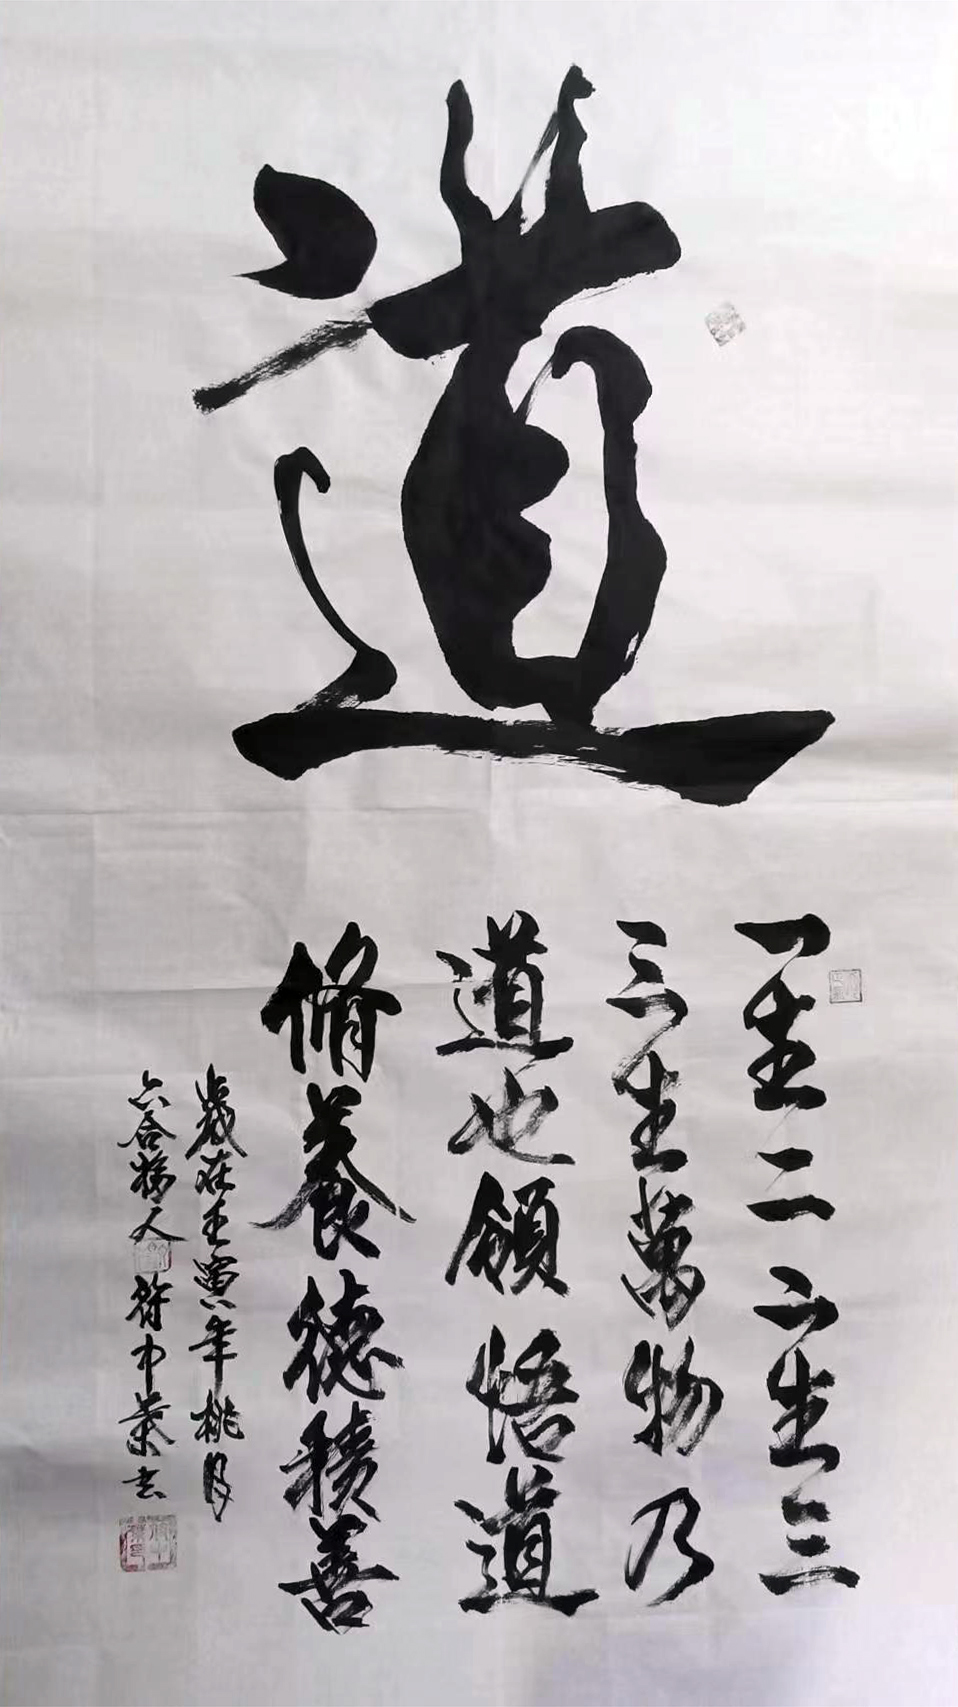 道
一生二二生三
三生萬物乃
道也領悟道
脩養德積善
歲在壬寅年桃月
六合
人
符中
書